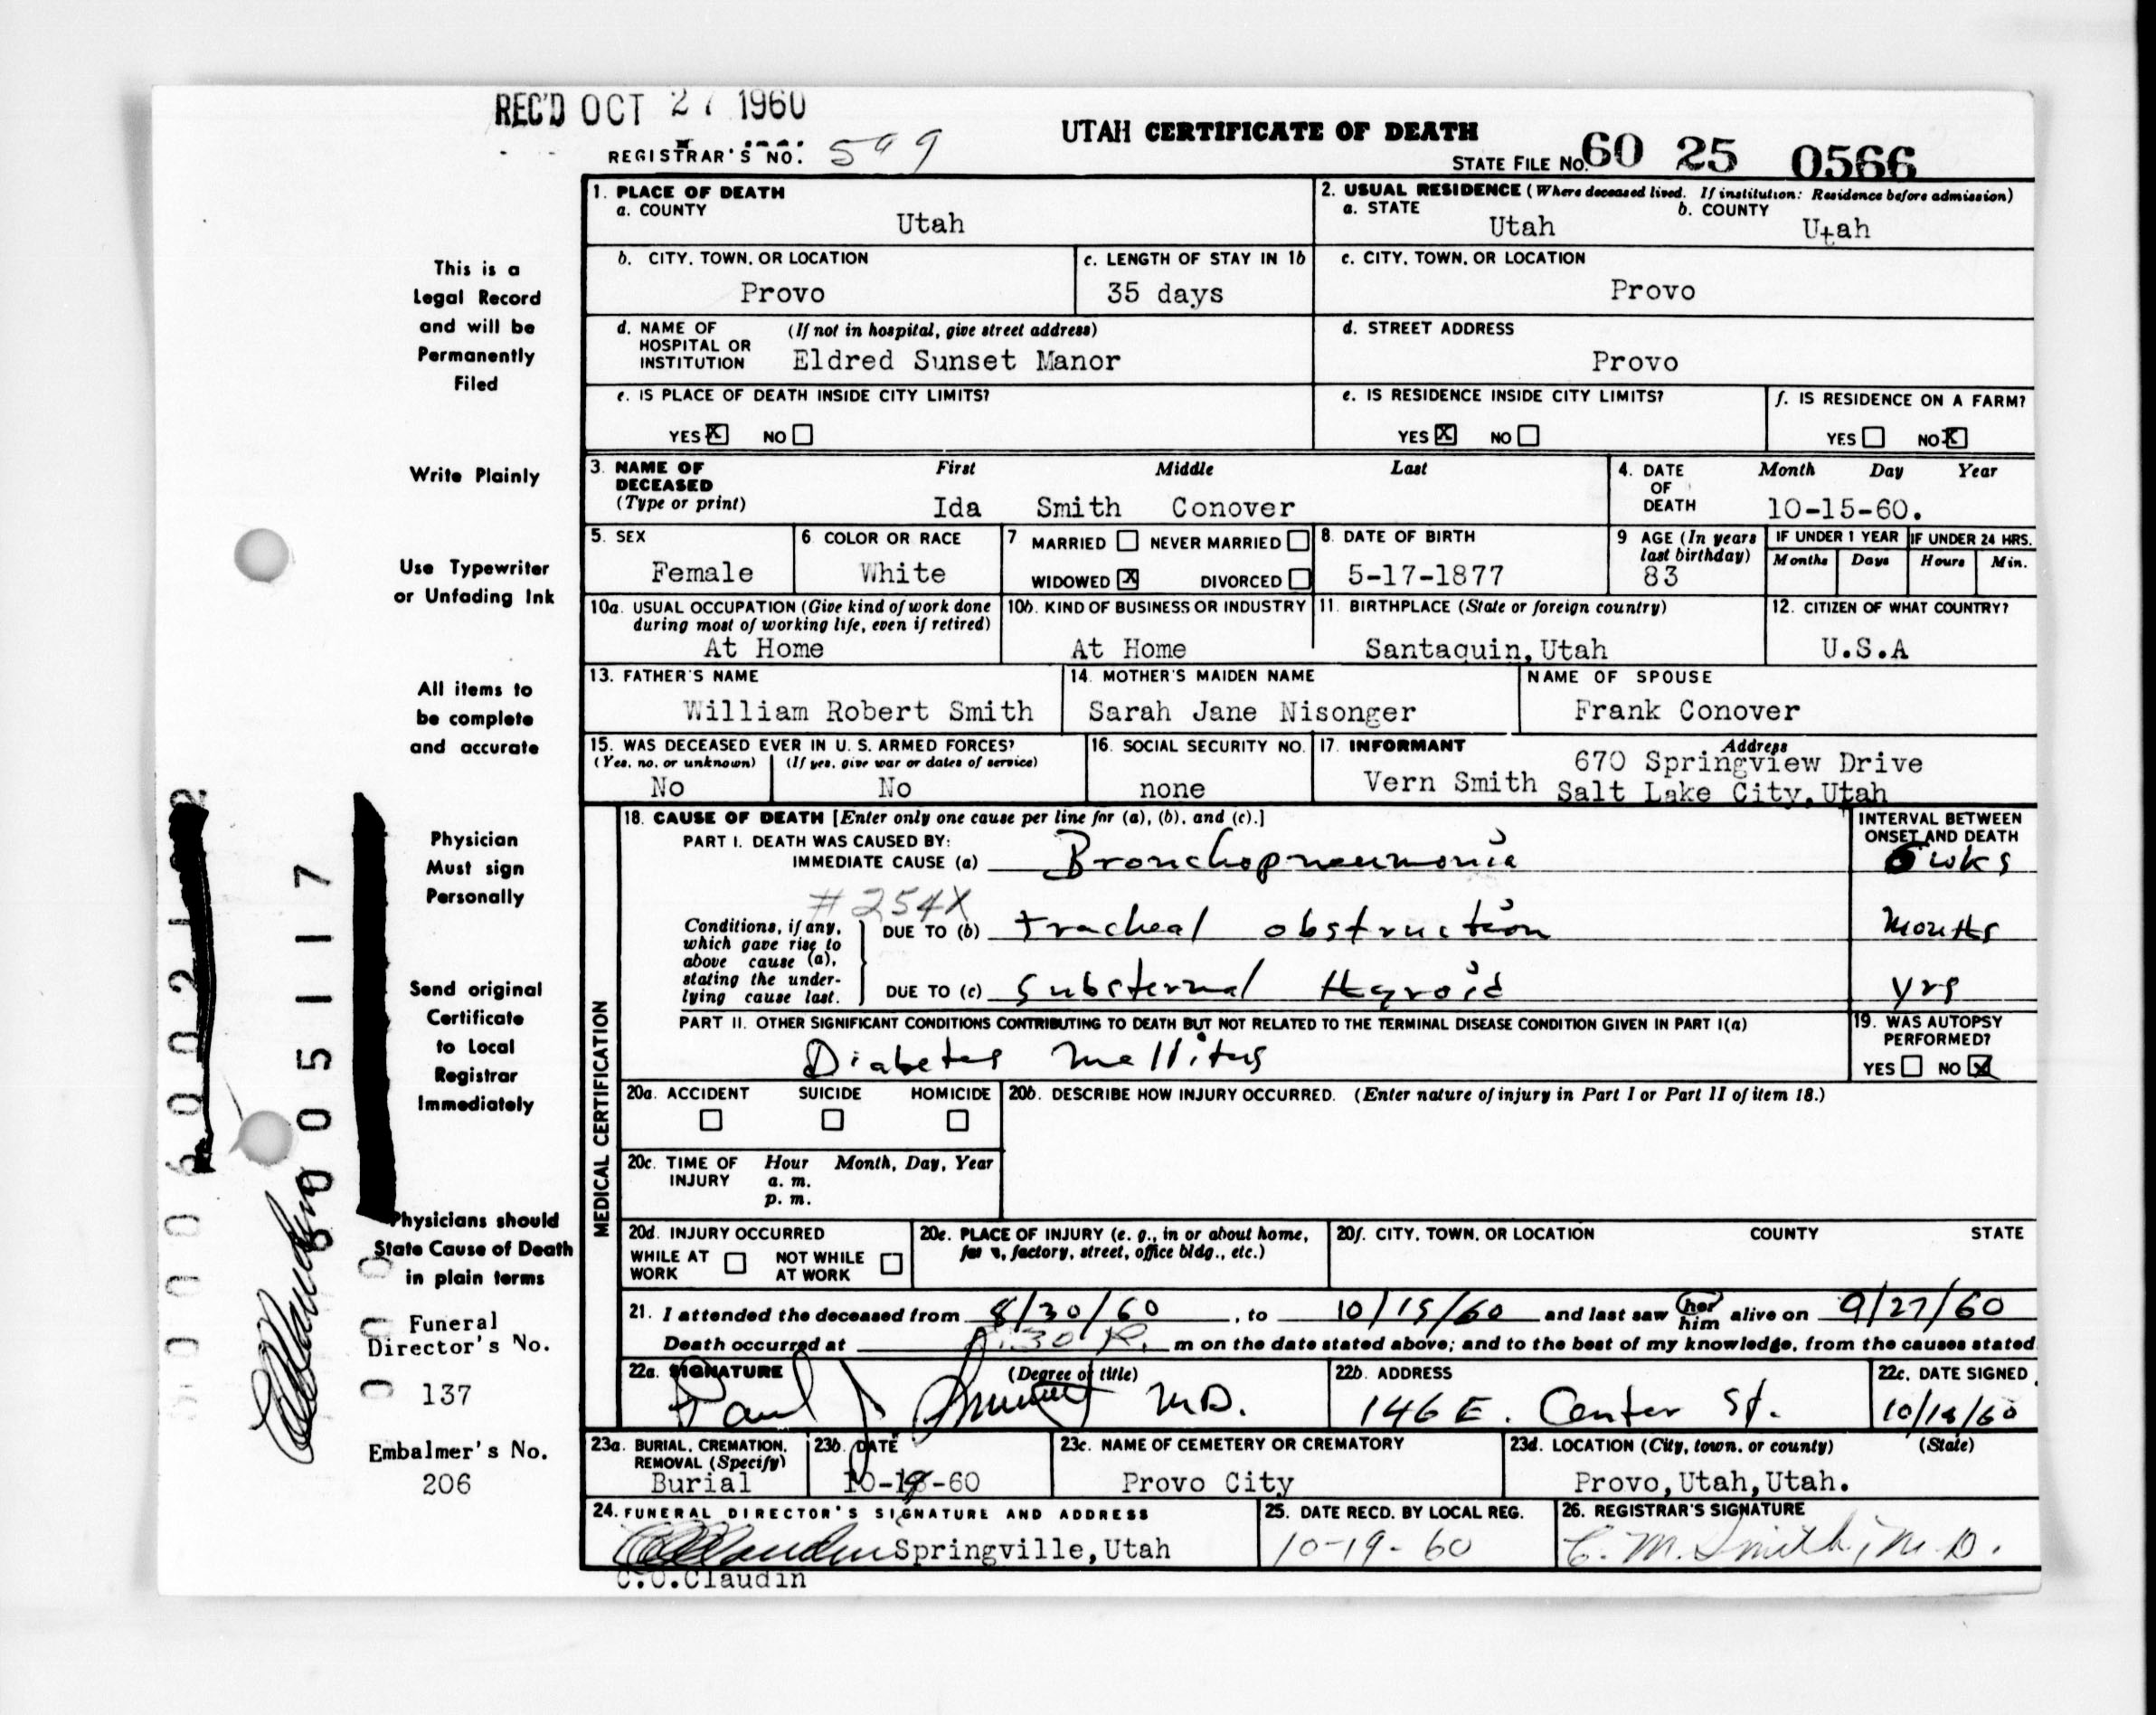 REC'D OCT 27 1960
REGISTRAR'S NO. 599
UTAH CERTIFICATE OF DEATH
STATE FILE NO. 60 25 0566
This is a
Legal Record
and will be
Permanently
Filed
Write Plainly
Use Typewriter
or Unfading Ink
All items to
be complete
and accurate
Physician
Must sign
Personally
Send original
Certificate
to Local
Registrar
Immediately
Physicians should
State Cause of Death
in plain terms
Funeral
Director's No.
137
Embalmer's No.
206
1. PLACE OF DEATH
a. COUNTY
Utah
2. USUAL RESIDENCE (Where deceased lived. If institution: Residence before admission)
a. STATE b. COUNTY
Utah Utah
b. CITY, TOWN, OR LOCATION
Provo
c. LENGTH OF STAY IN 1b
35 days
c. CITY, TOWN, OR LOCATION
Provo
d. NAME OF (If not in hospital, give street address)
HOSPITAL OR
INSTITUTION Eldred Sunset Manor
d. STREET ADDRESS
Provo
e. IS PLACE OF DEATH INSIDE CITY LIMITS?
YES X NO
e. IS RESIDENCE INSIDE CITY LIMITS?
YES X NO
f. IS RESIDENCE ON A FARM?
YES NO X
3. NAME OF First Middle Last
DECEASED
(Type or print) Ida Smith Conover
4. DATE Month Day Year
OF
DEATH 10-15-60.
5. SEX
Female
6. COLOR OR RACE
White
7 MARRIED NEVER MARRIED
WIDOWED X DIVORCED
8. DATE OF BIRTH
5-17-1877
9 AGE (In years
last birthday)
83
IF UNDER 1 YEAR IF UNDER 24 HRS.
Months Days Hours Min.
10a. USUAL OCCUPATION (Give kind of work done
during most of working life, even if retired)
At Home
10b. KIND OF BUSINESS OR INDUSTRY
At Home
11. BIRTHPLACE (State or foreign country)
Santaquin, Utah
12. CITIZEN OF WHAT COUNTRY?
U.S.A
13. FATHER'S NAME
William Robert Smith
14. MOTHER'S MAIDEN NAME
Sarah Jane Nisonger
NAME OF SPOUSE
Frank Conover
15. WAS DECEASED EVER IN U. S. ARMED FORCES?
(Yes, no, or unknown) (If yes, give war or dates of service)
No No
16. SOCIAL SECURITY NO.
none
17. INFORMANT Address
670 Springview Drive
Vern Smith Salt Lake City, Utah
MEDICAL CERTIFICATION
18. CAUSE OF DEATH [Enter only one cause per line for (a), (b), and (c).]
PART I. DEATH WAS CAUSED BY:
IMMEDIATE CAUSE (a) Bronchopneumonia
INTERVAL BETWEEN
ONSET AND DEATH
wks
#254X
Conditions, if any,
which gave rise to
above cause (a),
stating the under-
lying cause last.
DUE TO (b) tracheal obstruction
Months
DUE TO (c) Substernal thyroid
yrs
PART II. OTHER SIGNIFICANT CONDITIONS CONTRIBUTING TO DEATH BUT NOT RELATED TO THE TERMINAL DISEASE CONDITION GIVEN IN PART I(a)
Diabetes Mellitus
19. WAS AUTOPSY
PERFORMED?
YES NO X
20a. ACCIDENT SUICIDE HOMICIDE
20b. DESCRIBE HOW INJURY OCCURRED. (Enter nature of injury in Part I or Part II of item 18.)
20c. TIME OF Hour Month, Day, Year
INJURY a. m.
p. m.
20d. INJURY OCCURRED
WHILE AT NOT WHILE
WORK AT WORK
20e. PLACE OF INJURY (e. g., in or about home,
factory, street, office bldg., etc.)
20f. CITY, TOWN, OR LOCATION COUNTY STATE
21. I attended the deceased from 8/30/60, to 10/15/60 and last saw her him alive on 9/27/60
Death occurred at :30 P. m on the date stated above; and to the best of my knowledge, from the causes stated
22a. SIGNATURE (Degree or title)
Paul M.D.
22b. ADDRESS
146 E. Center St.
22c. DATE SIGNED
10/18/60
23a. BURIAL, CREMATION,
REMOVAL (Specify)
Burial
23b. DATE
10-18-60
23c. NAME OF CEMETERY OR CREMATORY
Provo City
23d. LOCATION (City, town, or county) (State)
Provo, Utah, Utah.
24. FUNERAL DIRECTOR'S SIGNATURE AND ADDRESS
Springville, Utah
C.O.Claudin
25. DATE RECD. BY LOCAL REG.
10-19-60
26. REGISTRAR'S SIGNATURE
C. M. Smith, M.D.